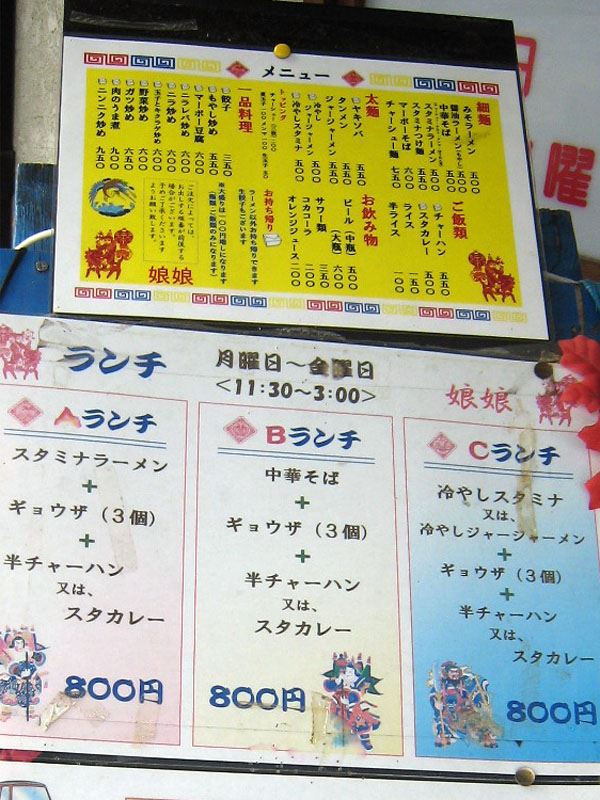 メニュー
細麺
みそラーメン 五五〇
醤油ラーメン 五〇〇
中華そば 五〇〇
スタミナラーメン 五五〇
スタミナつけ麺 五五〇
マーボーそば 六五〇
チャーシュー麺 七五〇
ご飯類
チャーハン 五五〇
スタカレー 五五〇
ライス 一五〇
半ライス 一〇〇
太麺
ヤキソバ 五五〇
タンメン 五五〇
ジャージャーメン 五五〇
冷やし
ジャージャーメン 五五〇
冷やしスタミナ 五五〇
トッピング
お飲み物
ビール (中瓶) 五〇〇
(大瓶) 六〇〇
サワー類 三五〇
コカコーラ 二〇〇
オレンジジュース 二〇〇
一品料理
餃子 三五〇
もやし炒め 五五〇
マーボー豆腐 六〇〇
ニラレバ炒め 六〇〇
ニラ炒め 六〇〇
玉子とキクラゲ炒め 六〇〇
野菜炒め 六〇〇
ガツ炒め 六〇〇
肉のうま煮 八五〇
ニンニク炒め 九五〇
お持ち帰り
ラーメン以外お持ち帰りできます
生餃子もございます
※大盛りは一〇〇円増しになります
(麺類・ご飯類のみになります)
ご注文によっては、
お出しする順番が前後する
場合がございます。
予めご了承くださいます
ようお願い致します。
娘娘
ランチ
月曜日～金曜日
＜11:30～3:00＞
娘娘
Aランチ
スタミナラーメン
+
ギョウザ（3個）
+
半チャーハン
又は、
スタカレー
800円
Bランチ
中華そば
+
ギョウザ（3個）
+
半チャーハン
又は、
スタカレー
800円
Cランチ
冷やしスタミナ
又は、
冷やしジャージャーメン
+
ギョウザ（3個）
+
半チャーハン
又は、
スタカレー
800円
曜